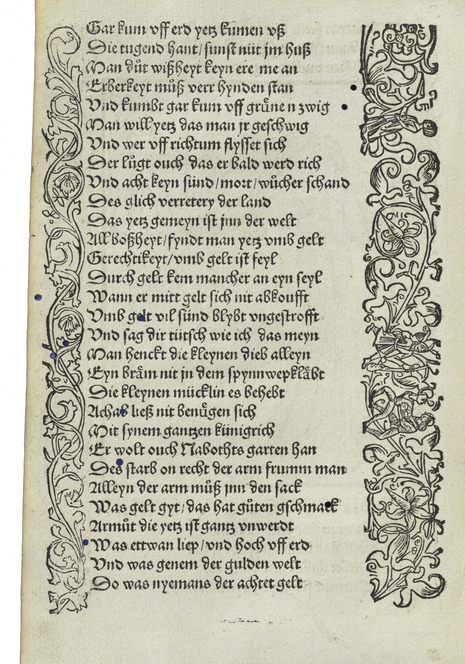 Gar kum vff erd yetz kumen vß
Die tugend hant / sunst nüt jm huß
Man düt wißheyt keyn ere me an
Erberkeyt müß verr hynden stan
Vnd kumbt gar kum vff grüne n zwig
Man will yetz das man jr geschwig
Vnd wer vff richtum flysset sich
Der lügt ouch das er bald werd rich
Vnd acht keyn sünd / mort / wůcher schand
Des glich verretery der land
Das yetz gemeyn ist jnn der welt
All boßheyt / fyndt man yetz vmb gelt
Gerechtikeyt / vmb gelt ist feyl
Durch gelt kem mancher an eyn seyl
Wann er mitt gelt sich nit abkoufft
Vmb gelt vil sünd blybt vngestrofft
Vnd sag dir tütsch wie ich das meyn
Man henckt die kleynen dieb alleyn
Eyn bräm nit in dem spynnwepkläbt
Die kleynen mücklin es behebt
Achab ließ nit benügen sich
Mit synem gantzen künigrich
Er wolt ouch Nabothts garten han
Des starb on recht der arm frumm man
Alleyn der arm můß jnn den sack
Was gelt gyt / das hat gůten gschmack
Armůt die yetz ist gantz vnwerdt
Was ettwan liep / vnd hoch vff erd
Vnd was genem der gulden welt
Do was nyemans der achtet gelt